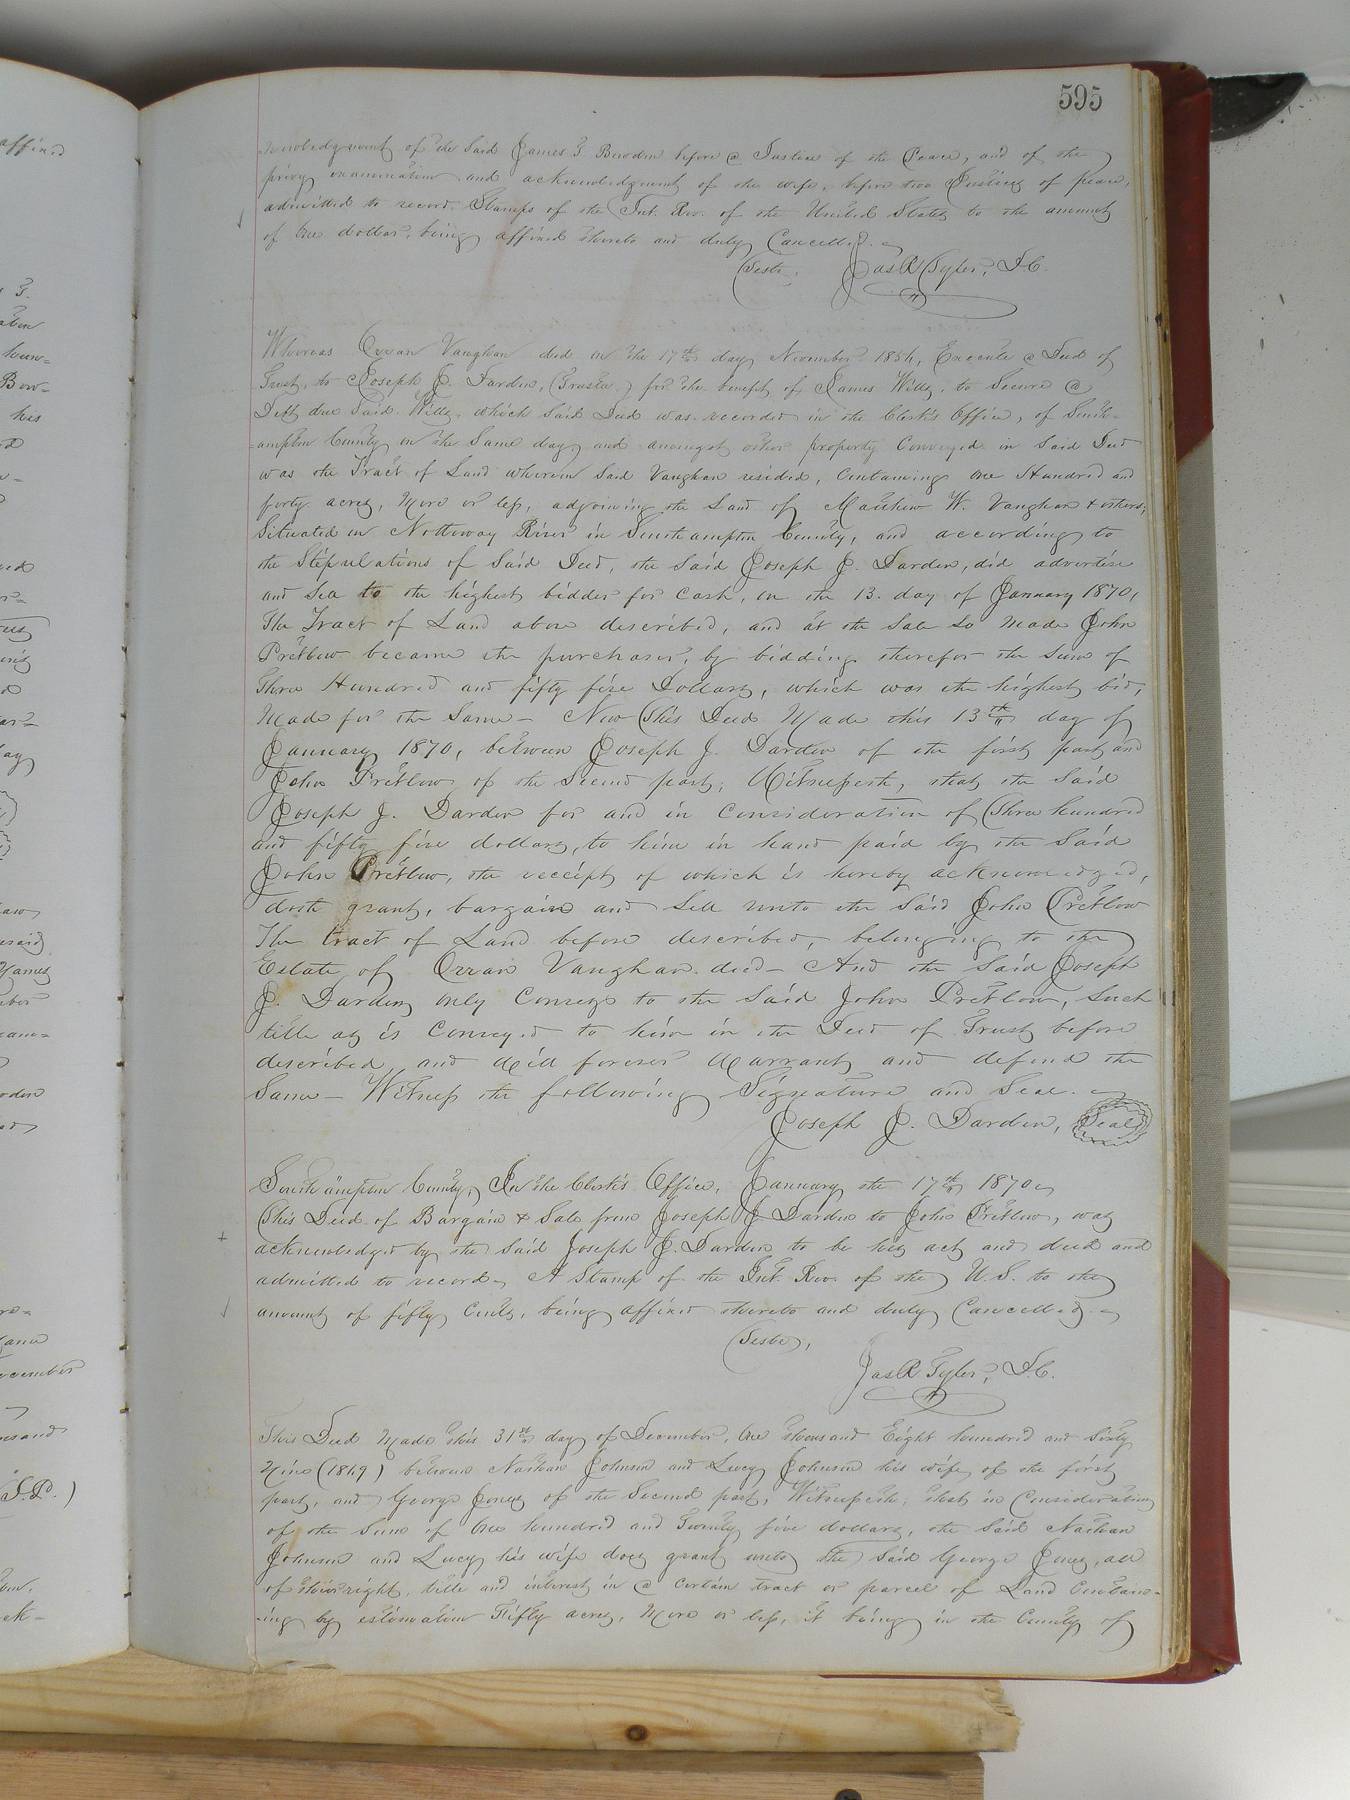 595
acknowledgment of the said James T Bowden before a Justice of the Peace, and of the
privy examination and acknowledgment of the wife, before two Justices of Peace,
admitted to record. Stamps of the Int. Rev. of the United States to the amount
of One dollar, being affixed thereto and duly Cancelled.
Teste, Jas R Tyler, D.C.
Whereas Orran Vaughan did on the 17th day November 1854, Execute a Deed of
Trust, to Joseph J. Darden, (Trustee) for the benefit of James Wills, to Secure a
Debt due Said Wills, which Said Deed was recorded in the Clerk's Office, of South-
-ampton County on the Same day, and amongst other property Conveyed in Said Deed
was the Tract of Land wherein Said Vaughan resided, Containing One Hundred and
forty acres, More or less, adjoining the Land of Matthew W. Vaughan & others,
Situated on Nottoway River in Southampton County, and according to
the Stipulations of Said Deed, the Said Joseph J. Darden, did advertise
and Sell to the highest bidder for Cash, on the 13. day of January 1870,
The Tract of Land above described, and at the Sale so made John
Pretlow became the purchaser, by bidding therefor the Sum of
Three Hundred and fifty five Dollars, which was the highest bid,
Made for the Same - Now This Deed Made this 13th day of
January 1870, between Joseph J. Darden of the first part and
John Pretlow of the Second part, Witnesseth, that the Said
Joseph J. Darden for and in Consideration of Three hundred
and fifty five dollars, to him in hand paid by the Said
John Pretlow, the receipt of which is hereby acknowledged,
doth grant, bargain and Sell unto the Said John Pretlow
The tract of Land before described, belonging to the
Estate of Orran Vaughan decd - And the Said Joseph
J. Darden, only Conveys to the Said John Pretlow, Such
title as is Conveyed to him in the Deed of Trust before
described, and Will forever Warrant and defend the
Same - Witness the following Signature and Seal.
Joseph J. Darden, Seal
Southampton County, In the Clerk's Office, January the 17th 1870
This Deed of Bargain & Sale from Joseph J. Darden to John Pretlow, was
acknowledged by the Said Joseph J. Darden to be his act and deed and
admitted to record, A Stamp of the Int. Rev. of the U.S. to the
amount of fifty Cents, being affixed thereto and duly Cancelled
Teste,
Jas R Tyler, D.C.
This Deed Made this 31st day of December, One thousand Eight hundred and Sixty
Nine (1869) between Nathan Johnson and Lucy Johnson his wife of the first
part, and George Jones of the Second part, Witnesseth, that in Consideration
of the Sum of One hundred and Twenty five dollars, the Said Nathan
Johnson and Lucy his wife does grant unto the Said George Jones, all
of their right, title and interest in a certain tract or parcel of Land Contain-
-ing by estimation Fifty acres, More or less, it being in the County of